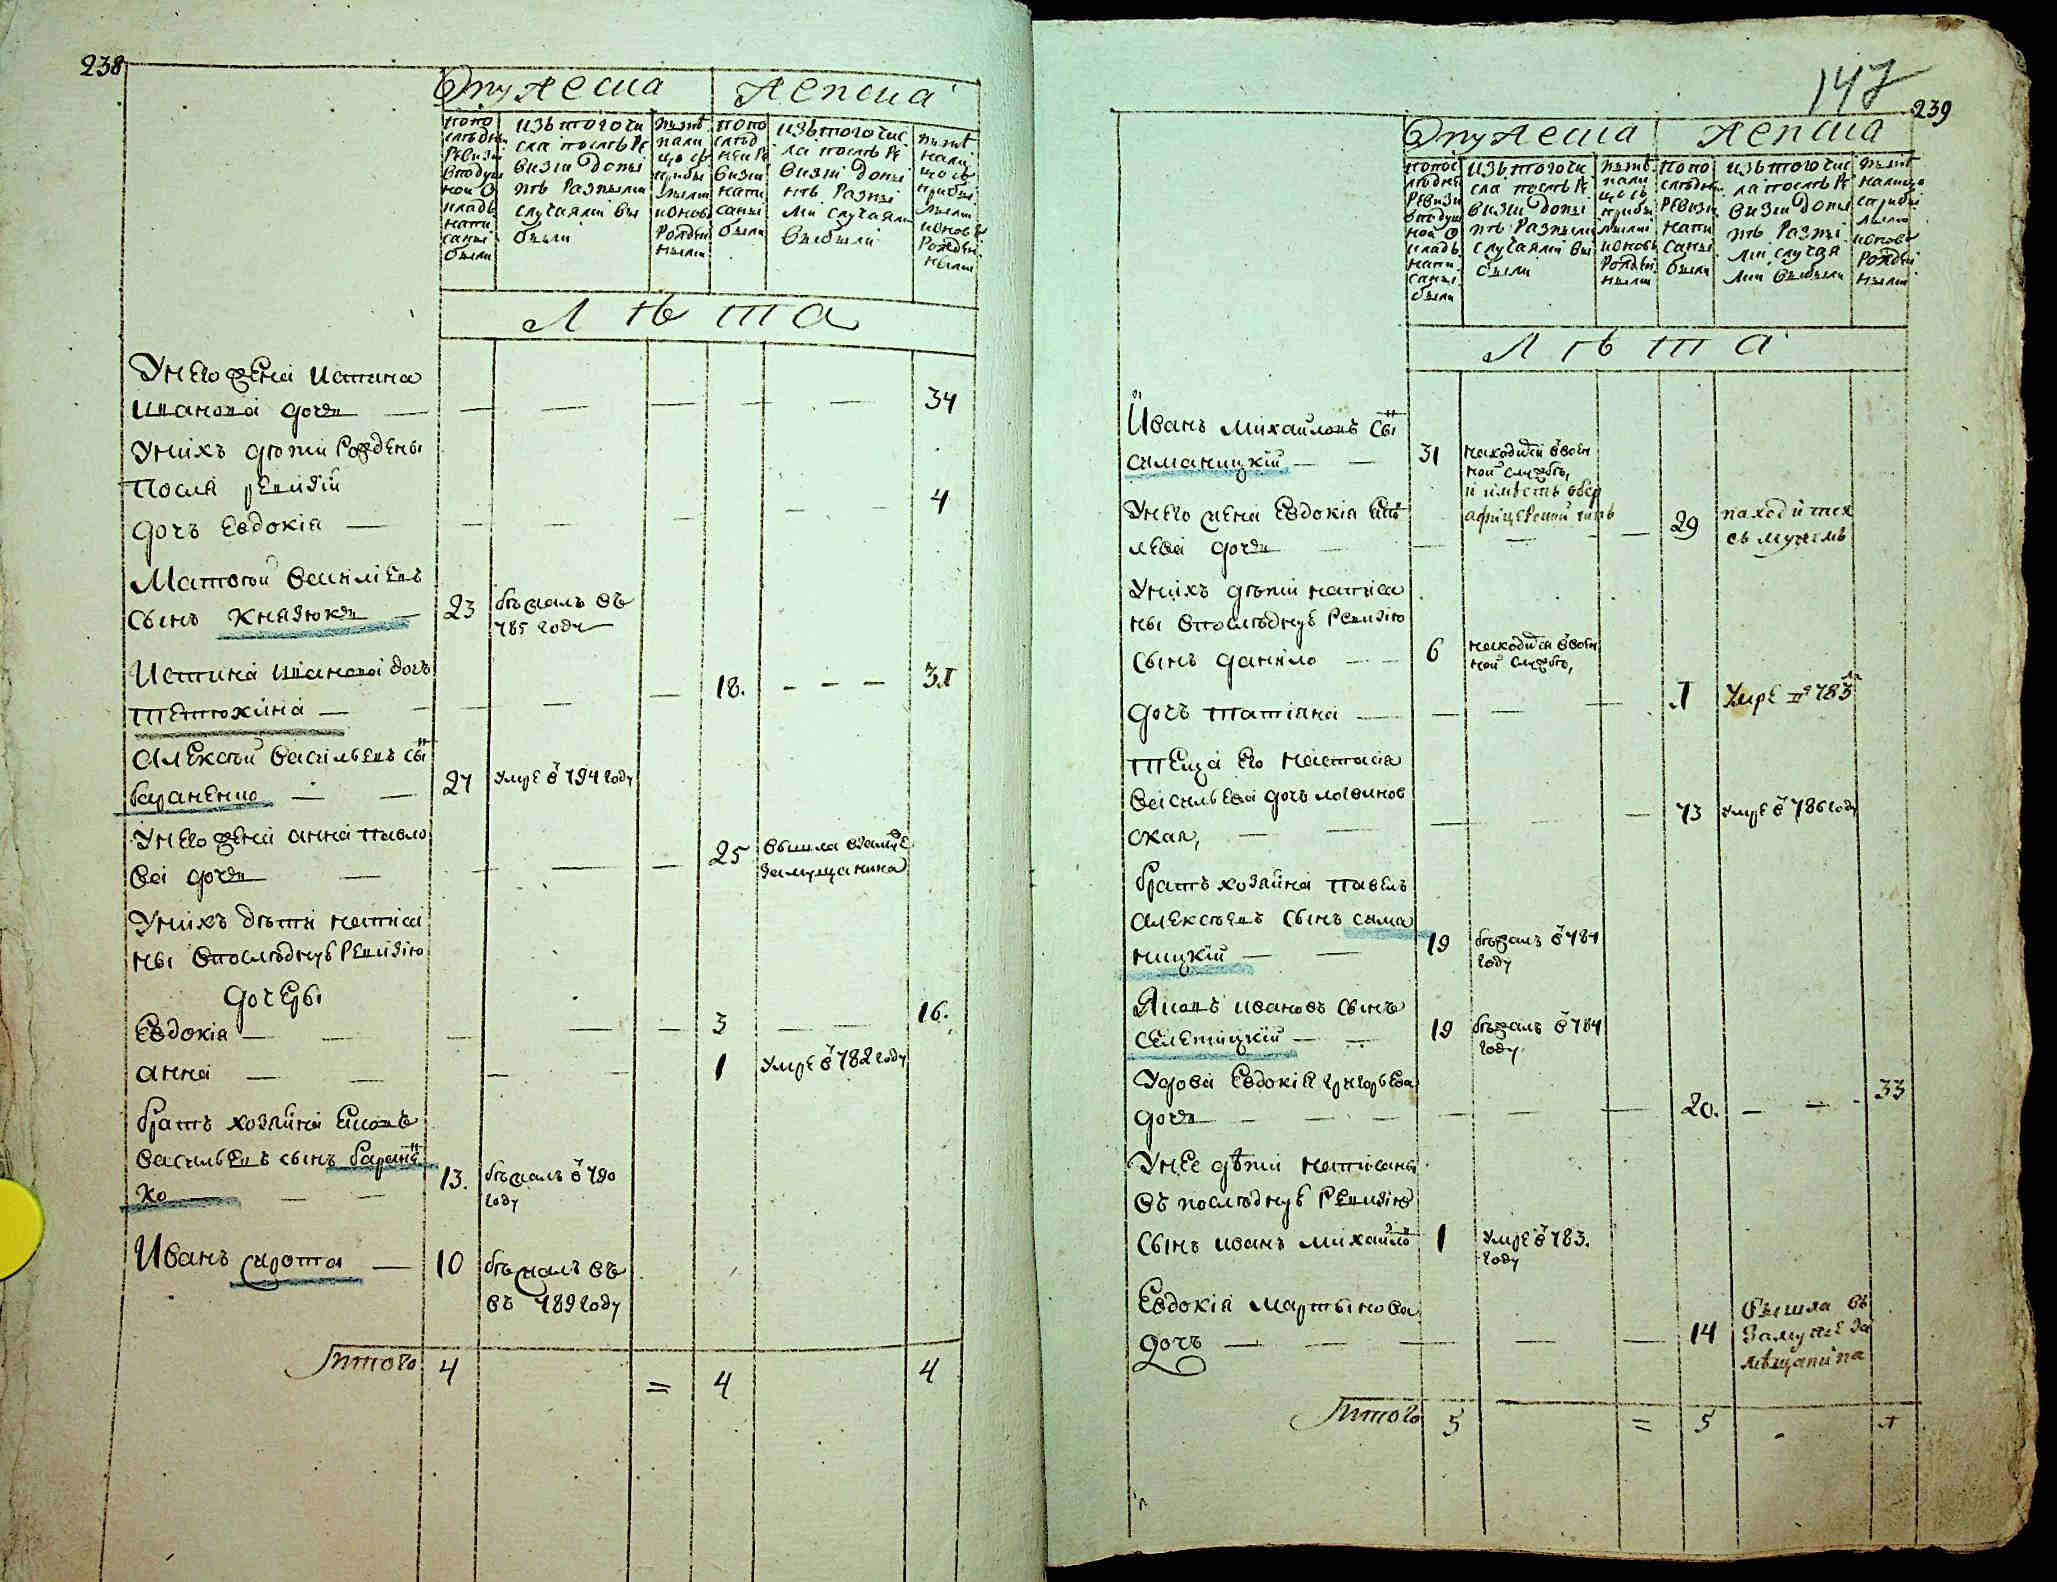 238
Опу жеска женска
попо
слѣдн
ревизи
вподуш
ной о
кладъ
напи
саны
были
изъ того чи
сла послѣ ре
визии донын
нѣ разными
случаями вы
были
нынѣ
нали
цо съ
прибы
лыми
иновь
рожден
ными
попо
слѣд
ней ре
визии
напи
саны
были
изъ того чис
ла послѣ ре
визии донын
нѣ разны
ми случаями
выбыли
нынѣ
нали
цо съ
прибы
лыми
иновь
рожден
ными
Лѣта
Унего жена Устина
Иванова дочь 34
Унихъ дѣтй рождены
После ревизіи
дочъ Евдокія 4
Матвѣй Василіевъ
сынъ Князюкъ 23 бѣжалъ въ
785 году
Устина Иванова дочъ
тетюхина 18. 31
Алексѣй Васильевъ сынъ
бараненко 27 умре в 794 году
Унего жена анна павло
ва дочь 25 вышла взамуже
замещанина
Унихъ дѣти написа
ны впослѣдную ревизію
дочеры
Евдокія 3 16.
анна 1 умре в 782 году
братъ хозяина Яковъ
васильевъ сынъ баранен
ко 13. бѣжалъ в 790
году
Иванъ сирота 10 бѣжалъ въ
въ 789 году
Итого 4 = 4 4
147
239
Опу жеска женска
попос
лѣдне
ревизи
вподуш
ной о
кладъ
напи
саны
были
изъ того чи
сла послѣ ре
визии донын
нѣ разными
случаями вы
были
нынѣ
нали
цо съ
прибы
лыми
иновь
рожден
ными
попо
слѣдн
ревизи
напи
саны
были
изъ того чис
ла послѣ ре
визии донын
нѣ разны
ми случая
ми выбыли
нынѣ
налицо
сприбы
лыми
иновь
рожден
ными
Лѣта
Иванъ михайловъ сынъ
саманицкій 31 находится ввоен
ной службѣ,
и имѣетъ обер
афицерской чинъ
Унего жена Евдокія
лева дочь 29 находится
съ мужемъ
Унихъ дѣтй написа
ны впослѣдную ревизію
сынъ данило 6 находится ввоен
ной службѣ,
дочъ татіяна 1 умре 783
теща его настасія
васильева дочъ ловинов
ская, 73 умре в 786 году
братъ хозяина павелъ
алексѣевъ сынъ сама
ницкій 19 бѣжалъ в 784
году
Яковъ ивановъ сынъ
селетицкій 19 бѣжалъ в 784
году.
Удова Евдокія григорьева
дочь 20. 33
Унее дѣтй написаны
въ послѣдную ревизію
сынъ иванъ михайло 1 умре в 783.
году
Евдокія мартынова
дочъ 14 вышла въ
замуже за
мѣщанина
Итого 5 = 5 1